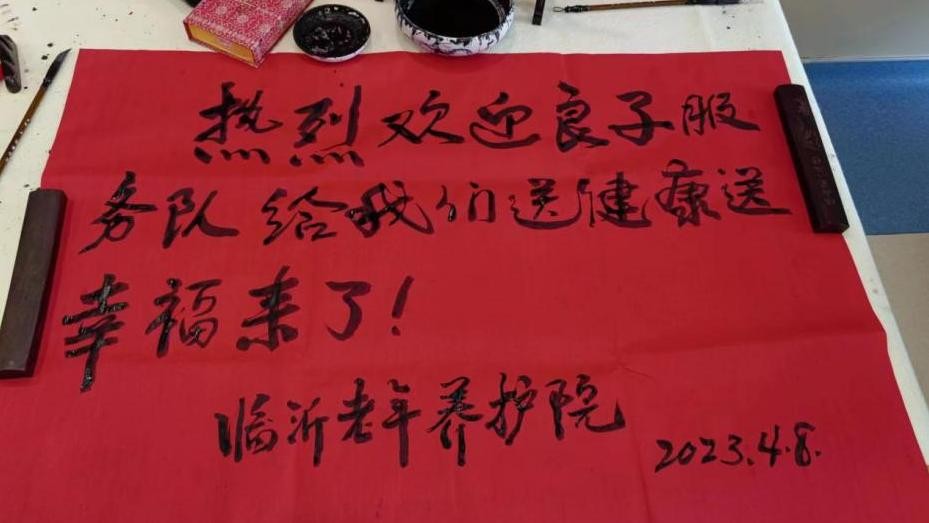 热烈欢迎良子服
务队给我们送健康送
幸福来了！
临沂老年养护院
2023.4.8.